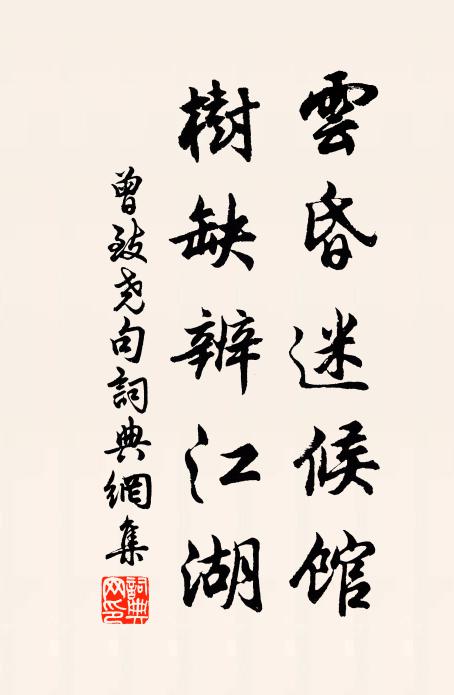 雲昏迷候館
樹缺辨江湖
曾致尧句詞典網集
詞典网印